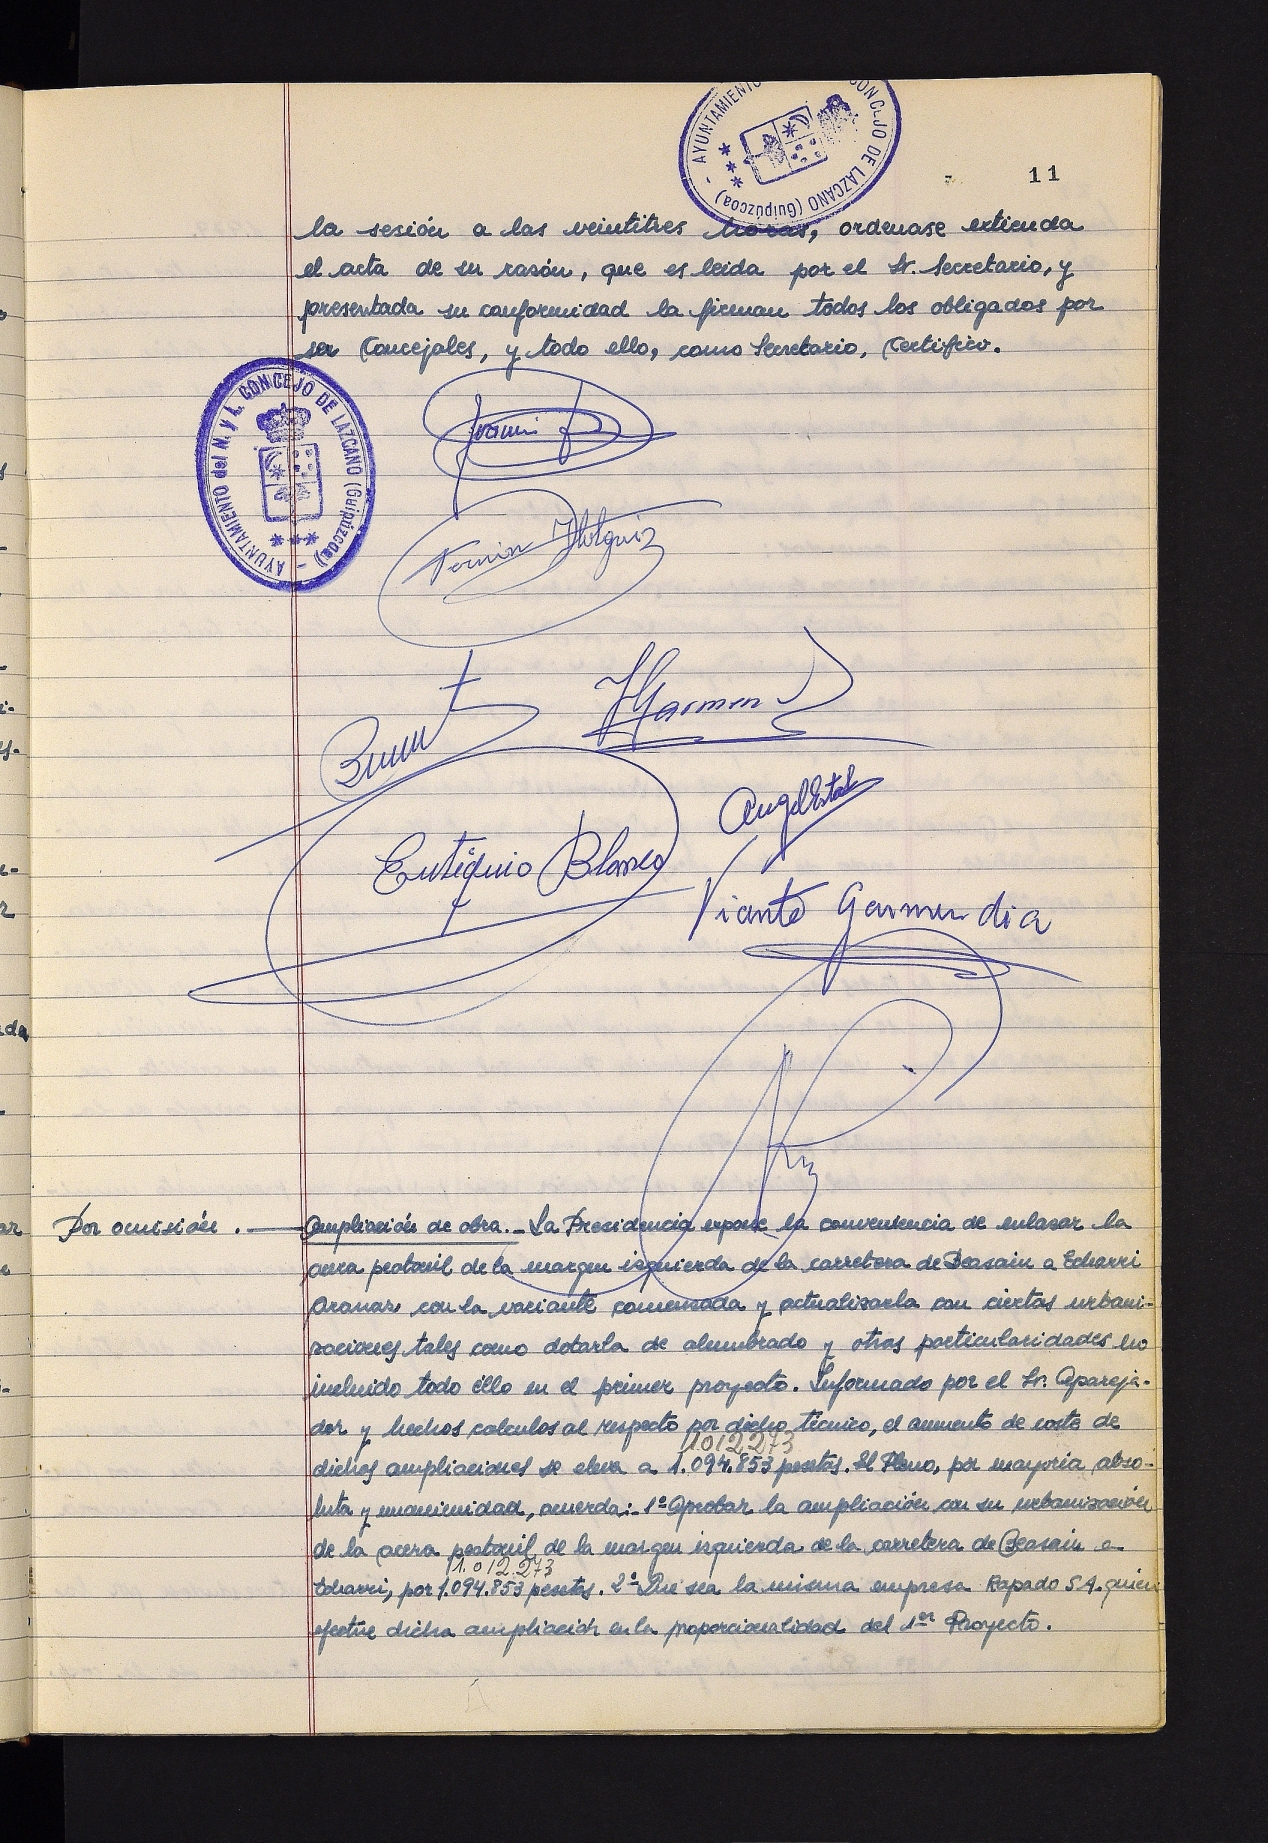 AYUNTAMIENTO CONCEJO DE LAZCANO (Guipúzcoa)
11
la sesión a las veintitres horas, ordenase extienda
el acta de su razón, que es leida por el Sr. Secretario, y
presentada su conformidad la firman todos los obligados por
ser Concejales, y todo ello, como Secretario, Certifico.
AYUNTAMIENTO del N. y L. CONCEJO DE LAZCANO (Guipúzcoa)
Eutiquio Blanco
Garmendia
Por omisión.— Ampliación de obra.- La Presidencia expone la conveniencia de enlazar la
acera peatonil de la margen izquierda de la carretera de Beasain a Echarri
Aranaz con la variante comenzada y actualizarla con ciertas urbani-
zaciones tales como dotarla de alumbrado y otras particularidades no
incluido todo éllo en el primer proyecto. Informado por el Sr. Apareja-
dor y hechos calculos al respecto por dicho técnico, el aumento de costo de
1.012.273
dichas ampliaciones se eleva a 1.094.853 pesetas. El Pleno, por mayoria abso-
luta y unanimidad, acuerda:- 1º Aprobar la ampliación con su urbanización
de la acera peatonil de la margen izquierda de la carretera de Beasain a
1.012.273
Echarri, por 1.094.853 pesetas. 2º Que sea la misma empresa Rapado S.A. quien
efectue dicha ampliación en la proporcionalidad del 1er Proyecto.